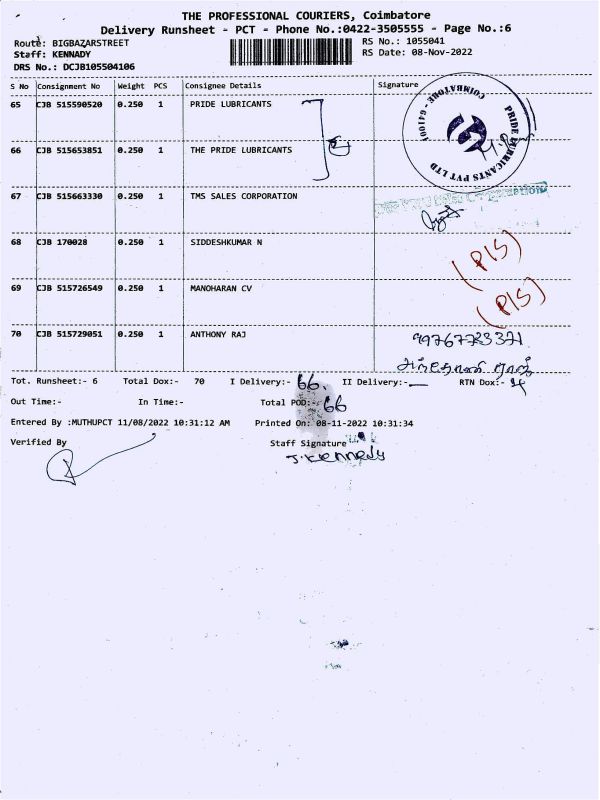 THE PROFESSIONAL COURIERS, Coimbatore
Delivery Runsheet - PCT - Phone No.:0422-3505555 - Page No.:6
Route: BIGBAZARSTREET
RS No.: 1055041
Staff: KENNADY
RS Date: 08-Nov-2022
DRS No.: DCJB105504106
S No Consignment No Weight PCS Consignee Details Signature
65 CJB 515590520 0.250 1 PRIDE LUBRICANTS
COIMBATORE - 641001
PRIDE LUBRICANTS PVT LTD
66 CJB 515653851 0.250 1 THE PRIDE LUBRICANTS
67 CJB 515663330 0.250 1 TMS SALES CORPORATION
68 CJB 170028 0.250 1 SIDDESHKUMAR N (P/S)
69 CJB 515726549 0.250 1 MANOHARAN CV (P/S)
70 CJB 515729051 0.250 1 ANTHONY RAJ
அந்தோணி ராஜ்
Tot. Runsheet:- 6 Total Dox:- 70 I Delivery:- 66. II Delivery:- — RTN Dox:- 4
Out Time:- In Time:- Total POD:- 66
Entered By :MUTHUPCT 11/08/2022 10:31:12 AM Printed On: 08-11-2022 10:31:34
Verified By Staff Signature
J. Kennady